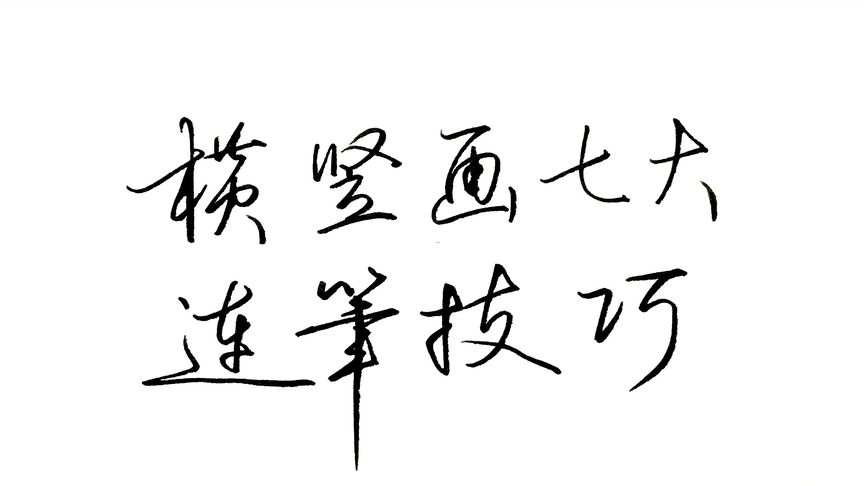 横竖画七大
连筆技巧